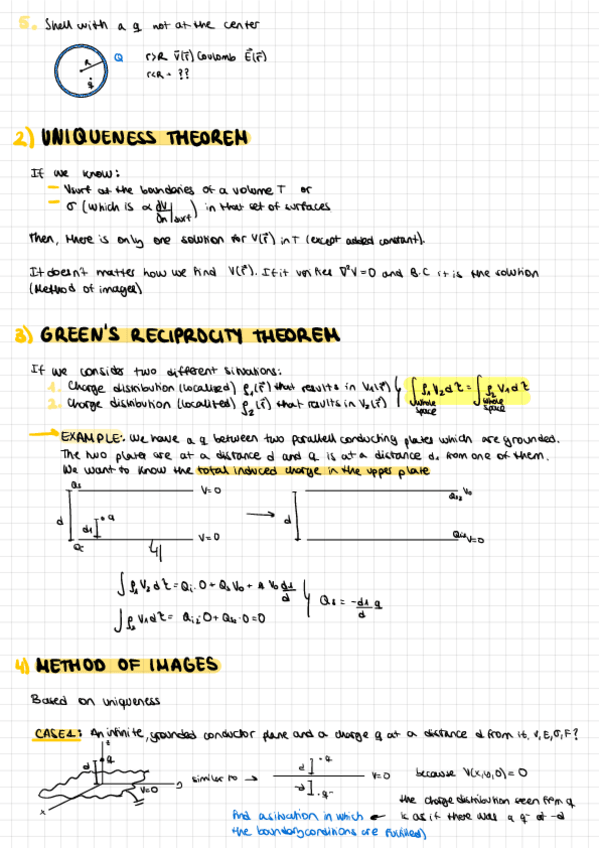 5. Shell with a q not at the center
R
q
Q
r>R V(r̄) Coulomb E(r̄)
r<R → ??
2) UNIQUENESS THEOREM
If we know:
– Vsurf at the boundaries of a volume T or
– σ (which is ∝ dV/dn |surf) in that set of surfaces
Then, there is only one solution for V(r̄) in T (except added constant).
It doesn't matter how we find V(r̄). If it verifies ∇²V=0 and B.C it is the solution
(Method of images)
3) GREEN'S RECIPROCITY THEOREM
If we consider two different situations:
1. Charge distribution (localized) ρ₁(r̄) that results in V₁(r̄)
2. Charge distribution (localized) ρ₂(r̄) that results in V₂(r̄)
∫ρ₁V₂dτ = ∫ρ₂V₁dτ
whole space whole space
EXAMPLE: We have a q between two parallell conducting plates which are grounded.
The two plates are at a distance d and q is at a distance d₁ from one of them.
We want to know the total induced charge in the upper plate
Qs V=0
d d₁ q
Qi V=0
Qs2 V₀
d
Qi2 V=0
∫ρ₁V₂dτ = Qi·0+QsV₀+qV₀ d₁/d
∫ρ₂V₁dτ = Qi2·0+Qs2·0=0
Qs = -d₁q/d
4) METHOD OF IMAGES
Based on uniqueness
CASE 1: An infinite, grounded conductor plane and a charge q at a distance d from it. V,E,σ,F?
z
d q
V=0
x
similar to →
d q
-d q-
V=0
because V(x,y,0)=0
the charge distribution seen from q
is as if there was a q- at -d
find a situation in which
the boundary conditions are fulfilled)